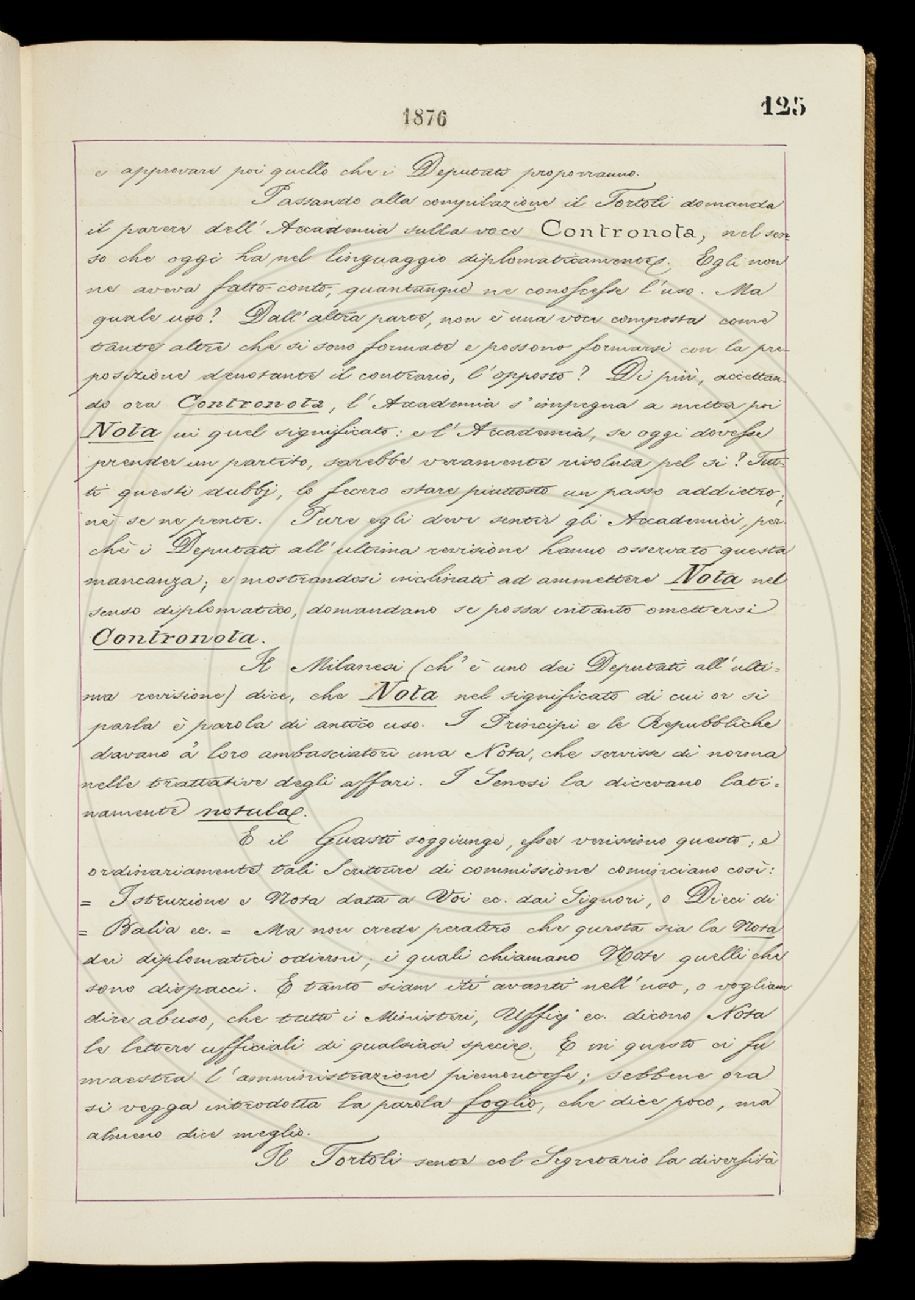 1876
125
e approvare poi quello che i Deputati proporranno.
Passando alla compilazione il Tortoli domanda
il parere dell'Accademia sulla voce Contronota, nel sen-
so che oggi ha nel linguaggio diplomaticamente. Egli non
ne aveva fatto conto, quantunque ne conoscesse l'uso. Ma
quale uso? Dall'altra parte, non è una voce composta come
tante altre che si sono formate e possono formarsi con la pre-
posizione denotante il contrario, l'opposto? Di più, accettan-
do ora Contronota, l'Accademia s'impegna a metter poi
Nota in quel significato: e l'Accademia, se oggi dovesse
prender un partito, sarebbe veramente risoluta pel sì? Tut-
ti questi dubbj, lo fecero stare piuttosto un passo addietro;
nè se ne pente. Pure egli deve sentir gli Accademici, per-
chè i Deputati all'ultima revisione hanno osservato questa
mancanza; e mostrandosi inclinati ad ammettere Nota nel
senso diplomatico, domandano se possa intanto omettersi
Contronota.
Il Milanesi (ch'è uno dei Deputati all'ulti-
ma revisione) dice, che Nota nel significato di cui or si
parla è parola di antico uso. I Principi e le Repubbliche
davano a' loro ambasciatori una Nota, che servisse di norma
nelle trattative degli affari. I Senesi la dicevano lati-
namente notulae.
E il Guasti soggiunge, esser verissimo questo; e
ordinariamente tali Scritture di commissione cominciano così:
= Istruzione e Nota data a Voi ec. dai Signori, o Dieci di
= Balìa ec. = Ma non crede peraltro che questa sia la Nota
dei diplomatici odierni, i quali chiamano Note quelli che
sono dispacci. E tanto siam iti avanti nell'uso, o vogliam
dire abuso, che tutti i Ministeri, Uffizj ec. dicono Nota
le lettere ufficiali di qualsiasi specie. E in questo ci fu
maestra l'amministrazione piemontese; sebbene ora
si vegga introdotta la parola foglio, che dice poco, ma
almeno dice meglio.
Il Tortoli sente col Segretario la diversità